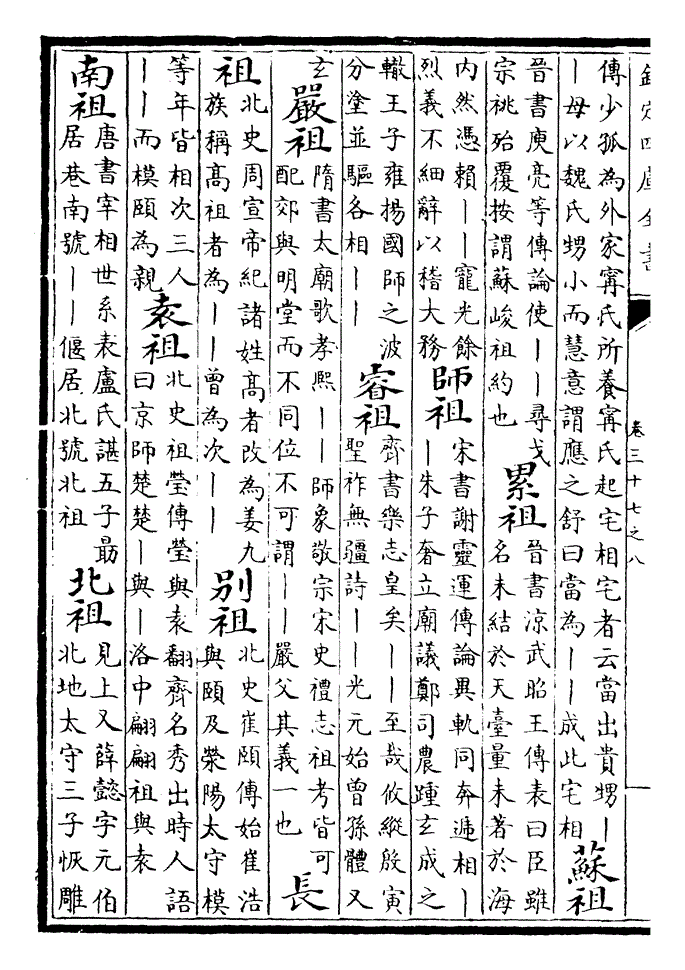 欽定四庫全書
卷三十七之八
傳少孤為外家甯氏所養甯氏起宅相宅者云當出貴甥丨
丨母以魏氏甥小而慧意謂應之舒曰當為丨丨成此宅相
蘇祖
晉書庾亮等傳論使丨丨尋戈
宗祧殆覆按謂蘇峻祖約也
累祖
晉書涼武昭王傳表曰臣雖
名未結於天臺量未著於海
内然憑賴丨丨寵光餘
烈義不細辭以稽大務
師祖
宋書謝靈運傳論異軌同奔遞相丨
丨朱子奢立廟議鄭司農踵玄成之
轍王子雍揚國師之波
分塗並驅各相丨丨
睿祖
齊書樂志皇矣丨丨至哉攸縱啟寅
聖祚無疆詩丨丨光元始曾孫體又
玄
嚴祖
隋書太廟歌孝熙丨丨師象敬宗宋史禮志祖考皆可
配郊與明堂而不同位不可謂丨丨嚴父其義一也
長
祖
北史周宣帝紀諸姓高者改為姜九
族稱高祖者為丨丨曾為次丨丨
別祖
北史崔頤傳始崔浩
與頤及滎陽太守模
等年皆相次三人
丨丨而模頤為親
袁祖
北史祖瑩傳瑩與袁翻齊名秀出時人語
曰京師楚楚丨與丨洛中翩翩祖與袁
南祖
唐書宰相世系表盧氏諶五子最
居巷南號丨丨偃居北號北祖
北祖
見上又薛懿字元伯
北地太守三子恢雕